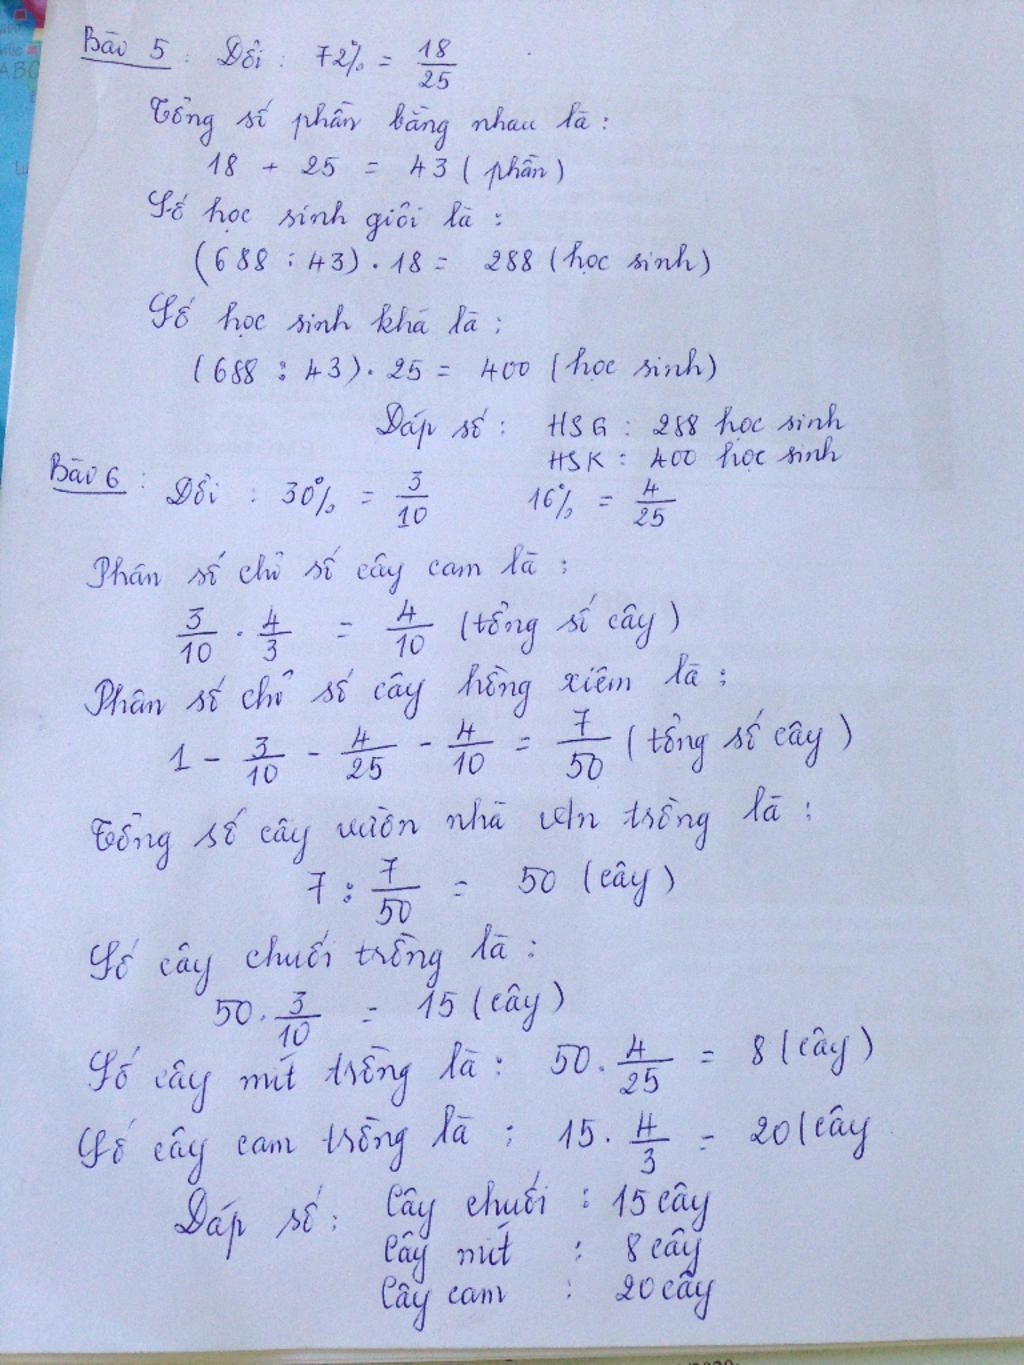 Bài 5 : Đổi : 72% = 18/25
Tổng số phần bằng nhau là :
18 + 25 = 43 ( phần )
Số học sinh giỏi là :
(688 : 43) . 18 = 288 (học sinh)
Số học sinh khá là :
(688 : 43) . 25 = 400 (học sinh)
Đáp số : HSG : 288 học sinh
HSK : 400 học sinh
Bài 6 : Đổi : 30% = 3/10 16% = 4/25
Phân số chỉ số cây cam là :
3/10 . 4/3 = 4/10 (tổng số cây)
Phân số chỉ số cây hồng xiêm là :
1 - 3/10 - 4/25 - 4/10 = 7/50 ( tổng số cây )
Tổng số cây vườn nhà trồng là :
7 : 7/50 = 50 (cây)
Số cây chuối trồng là :
50 . 3/10 = 15 (cây)
Số cây mít trồng là : 50 . 4/25 = 8 (cây)
Số cây cam trồng là : 15 . 4/3 = 20 (cây
Đáp số : Cây chuối : 15 cây
Cây mít : 8 cây
Cây cam : 20 cây